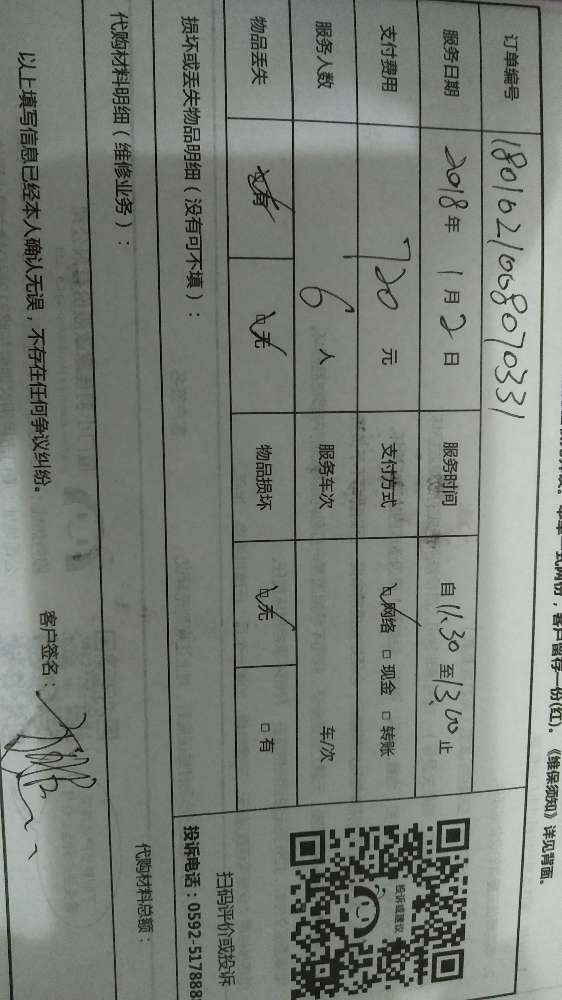 式两份，客户留存一份(红)。《维保须知》详见背面。
订单编号 1801021008070331
服务日期 2018年 1月2日 服务时间 自 11:30 至 13:00 止
支付费用 720 元 支付方式 ☑网络 □现金 □转账
服务人数 6 人 服务车次 车/次
物品丢失 有 ☑无 物品损坏 ☑无 □有
损坏或丢失物品明细（没有可不填）：
代购材料明细（维修业务）：
代购材料总额：
以上填写信息已经本人确认无误，不存在任何争议纠纷。
客户签名：
投诉或建议
扫码评价或投诉
投诉电话：0592-5178888